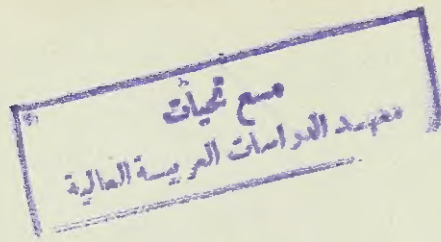 مع تحيات
معهد الدراسات العربية العالية